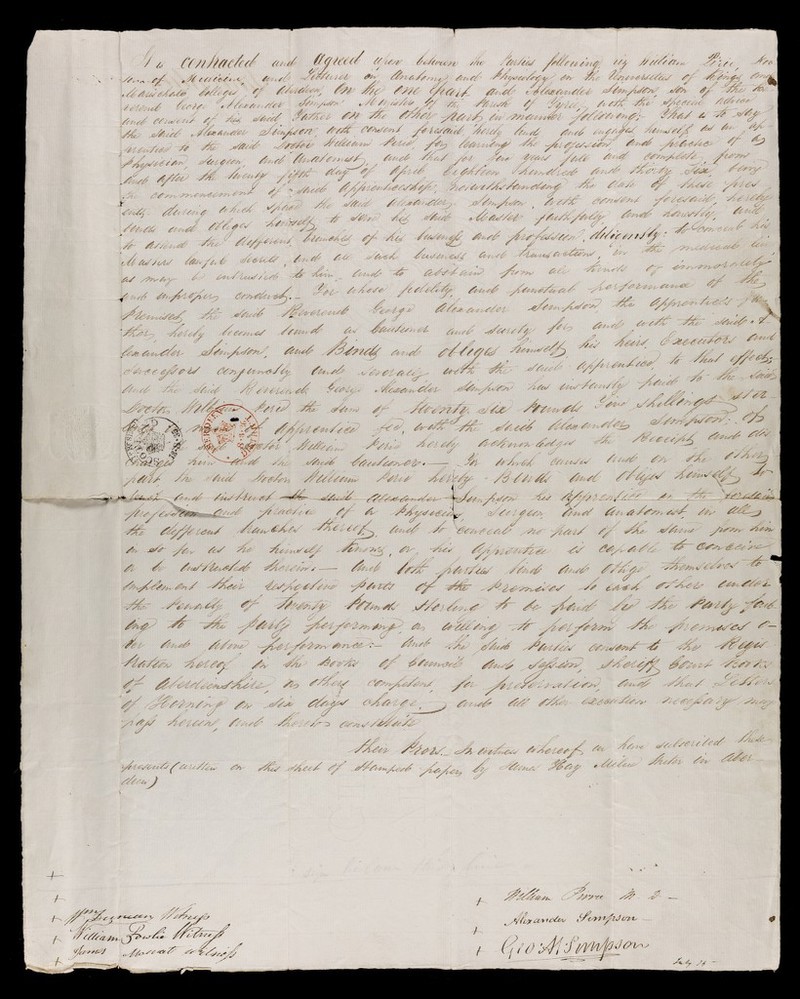 It is Contracted and Agreed upon between the Parties following viz William Pirie, 
of Medicine and Lecturer on Anatomy and Physiology in the Universities of Kings and
Marischals Colleges of Aberdeen, On the One part and Alexander Simpson son of the Re
verend George Alexander Simpson Minister of the Parish of Tyrie, with the special advice
and consent of his said Father On the Other part, in manner following; That is to say
the said Alexander Simpson, with consent foresaid hereby binds and engages himself as an ap
prentice to the said Doctor William Pirie, for learning the profession and practice of a
Physician, Surgeon, and Anatomist, and that for years full and complete, from
and after the twenty fifth day of April Eighteen hundred and thirty Six, being
the commencement of said Apprenticeship, notwithstanding the date of these pres
ents, during which space the said Alexander Simpson, with consent foresaid, hereby
binds and obliges himself to serve his said Master faithfully and honestly, and
to attend the different branches of his business and profession, diligently; to conceal his
Masters lawful secrets, and all such business and transactions, in the medical line
as may be intrusted to him, and to abstain from all kinds of immorality
and improper conduct.— For whose fidelity and punctual performance of the
Premises, the said Reverend George Alexander Simpson, the apprentices Fa
ther, hereby becomes bound as Cautioner and surety for and with the said A
lexander Simpson, and Binds and obliges himself, his heirs, Executors and
Successors conjunctly and severally with the said apprentice, to that effect;
and the said Reverend George Alexander Simpson has instantly paid to the said
Doctor William Pirie the sum of twenty six Pounds Five shillings ster
apprentice fee, with the said Alexander Simpson; Of
Doctor William Pirie hereby acknowledges the Receipt and dis
charges him and the said Cautioner.— For which causes and on the other
part, the said Doctor William Pirie hereby Binds and Obliges himself to
and instruct the said Alexander Simpson his apprentice in the
profession and practice of a Physician, Surgeon and anatomist, in all
the different branches thereof, and to conceal no part of the same from him
in so far as he himself knows, or his Apprentice is capable to conceive
or be instructed therein.— And both parties bind and oblige themselves to
implement their respective parts of the Premises to each other under
the Penalty of twenty Pounds Sterling to be paid by the Party fail
ing to the party performing, or willing to perform the premises o-
ver and above performance:— And the said Parties consent to the Regis
tration hereof in the Books of Council and Session, Sheriff Court Books
of Aberdeenshire, or others competent, for preservation, and that Letters
of Horning on six days charge, and all other execution necessary may
pass hereon, and thereto constitute
their Prors. In witness whereof, we have subscribed these
presents (written on this sheet of stamped paper by James Hay Milne in Aber
deen)
William Pirie M.D.
Witness
Alexander Simpson
William Witness
Geo: A. Simpson
James witness